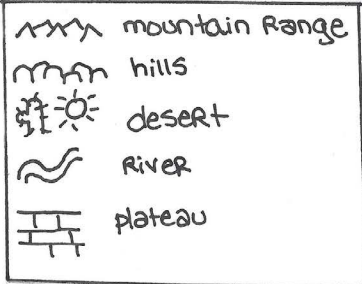 mountain Range
hills
deseRt
RiveR
plateau